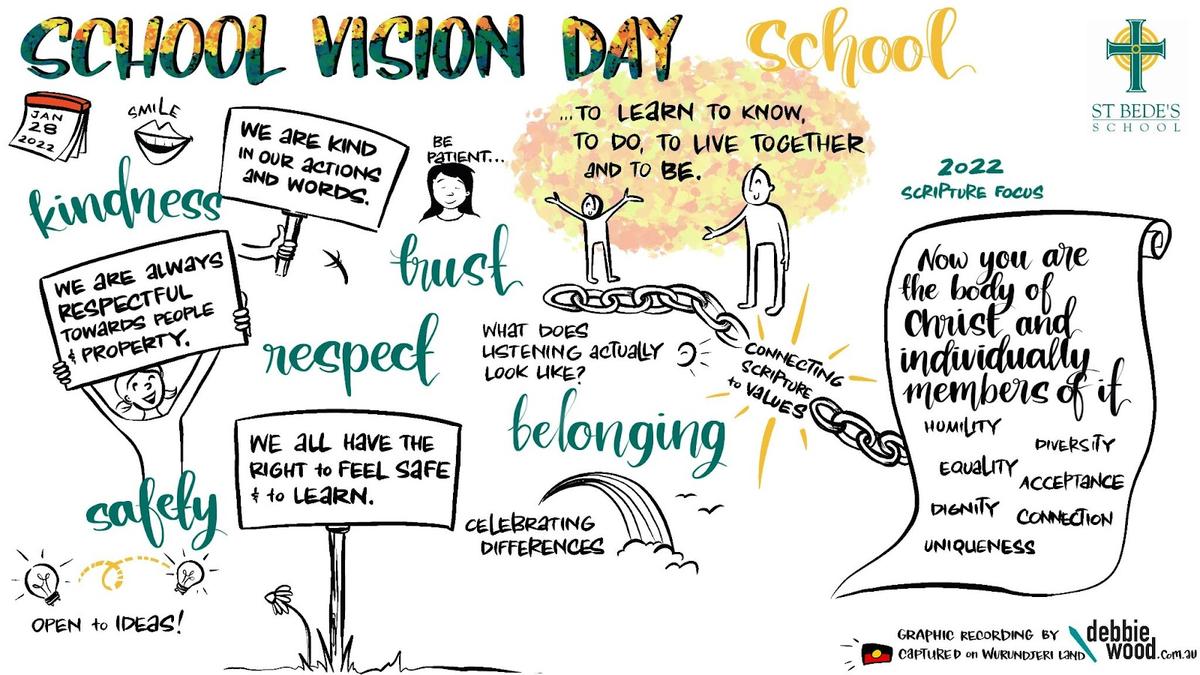 SCHOOL VISION DAY
school
ST BEDE'S
SCHOOL
JAN
28
2022
SMILE
kindness
WE ARE KIND
IN OUR ACTIONS
AND WORDS.
BE
PATIENT...
trust
...TO LEARN TO KNOW,
TO DO, TO LIVE TOGETHER
AND TO BE.
2022
SCRIPTURE FOCUS
WE ARE ALWAYS
RESPECTFUL
TOWARDS PEOPLE
& PROPERTY.
respect
WHAT DOES
LISTENING ACTUALLY
LOOK LIKE?
CONNECTING
SCRIPTURE
to VALUES
Now you are
the body of
Christ and
individually
members of it
HUMILITY
DIVERSITY
EQUALITY
ACCEPTANCE
DIGNITY
CONNECTION
UNIQUENESS
belonging
WE ALL HAVE THE
RIGHT to FEEL SAFE
& to LEARN.
safety
CELEBRATING
DIFFERENCES
OPEN to IDEAS!
GRAPHIC RECORDING BY
CAPTURED on WURUNDJERI LAND
debbie
wood.com.au